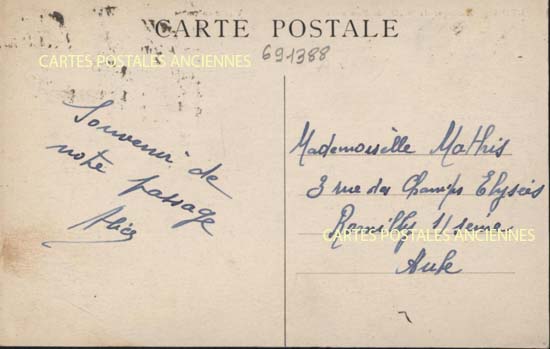 CARTE POSTALE
69-1388
CARTES POSTALES ANCIENNES
Souvenir de
notre passage
Alice
Mademoiselle Mathis
3 rue des Champs Elysées
Romilly s/ Seine
CARTES POSTALES ANCIENNES
Aube